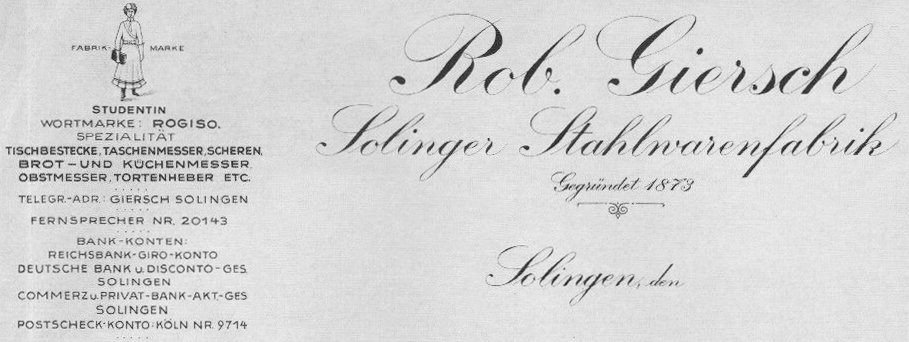 FABRIK- MARKE
STUDENTIN
WORTMARKE: ROGISO.
SPEZIALITÄT
TISCHBESTECKE, TASCHENMESSER, SCHEREN,
BROT-UND KÜCHENMESSER
OBSTMESSER, TORTENHEBER ETC.
TELEGR.-ADR.: GIERSCH SOLINGEN
FERNSPRECHER NR. 20143
BANK-KONTEN:
REICHSBANK-GIRO-KONTO
DEUTSCHE BANK u. DISCONTO-GES.
SOLINGEN
COMMERZ u. PRIVAT-BANK-AKT.-GES
SOLINGEN
POSTSCHECK-KONTO: KÖLN NR. 9714
Rob. Giersch
Solinger Stahlwarenfabrik
Gegründet 1873
Solingen, den